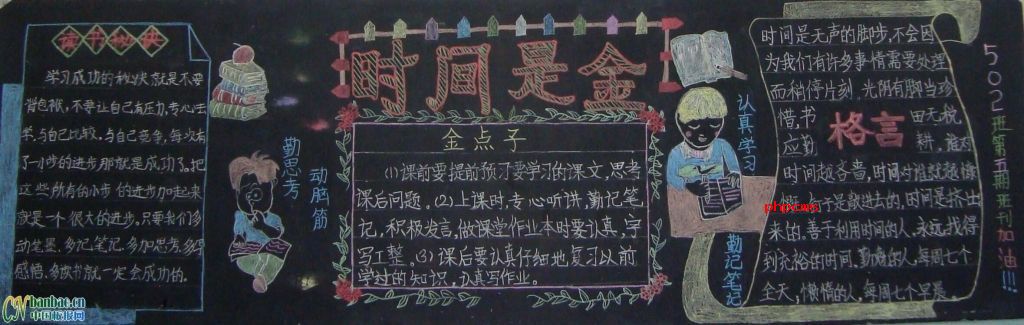 读书秘诀
学习成功的秘诀就是不要
背包袱,不要让自己有压力,专心上
学,与自己比较,与自己竞争,每次有
了一小步的进步那就是成功了。把
这些所有的小步的进步加起来
就是一个很大的进步。只要我们多
动笔墨,多记笔记,多加思考,多写
感悟,多读书就一定会成功的。
勤思考
动脑筋
时间是金
金点子
(1)课前要提前预习要学习的课文,思考
课后问题。(2)上课时,专心听讲,勤记笔
记,积极发言,做课堂作业本时要认真,字
写工整。(3)课后要认真仔细地复习以前
学过的知识,认真写作业。
认真学习
勤记笔记
格言
时间是无声的脚步,不会因
为我们有许多事情需要处理
而稍停片刻。光阴有脚当珍
惜 书田无税
应勤耕。谁对
时间越吝啬,时间对谁就越慷
于是歌进去的,时间是挤出
来的。善于利用时间的人,永远找得
到充裕的时间。勤嫩的人,每周七个
全天,懒惰的人,每周七个早晨。
502班第五期班刊加油!!!
phpcms
CN banbao.cn
中国板报网